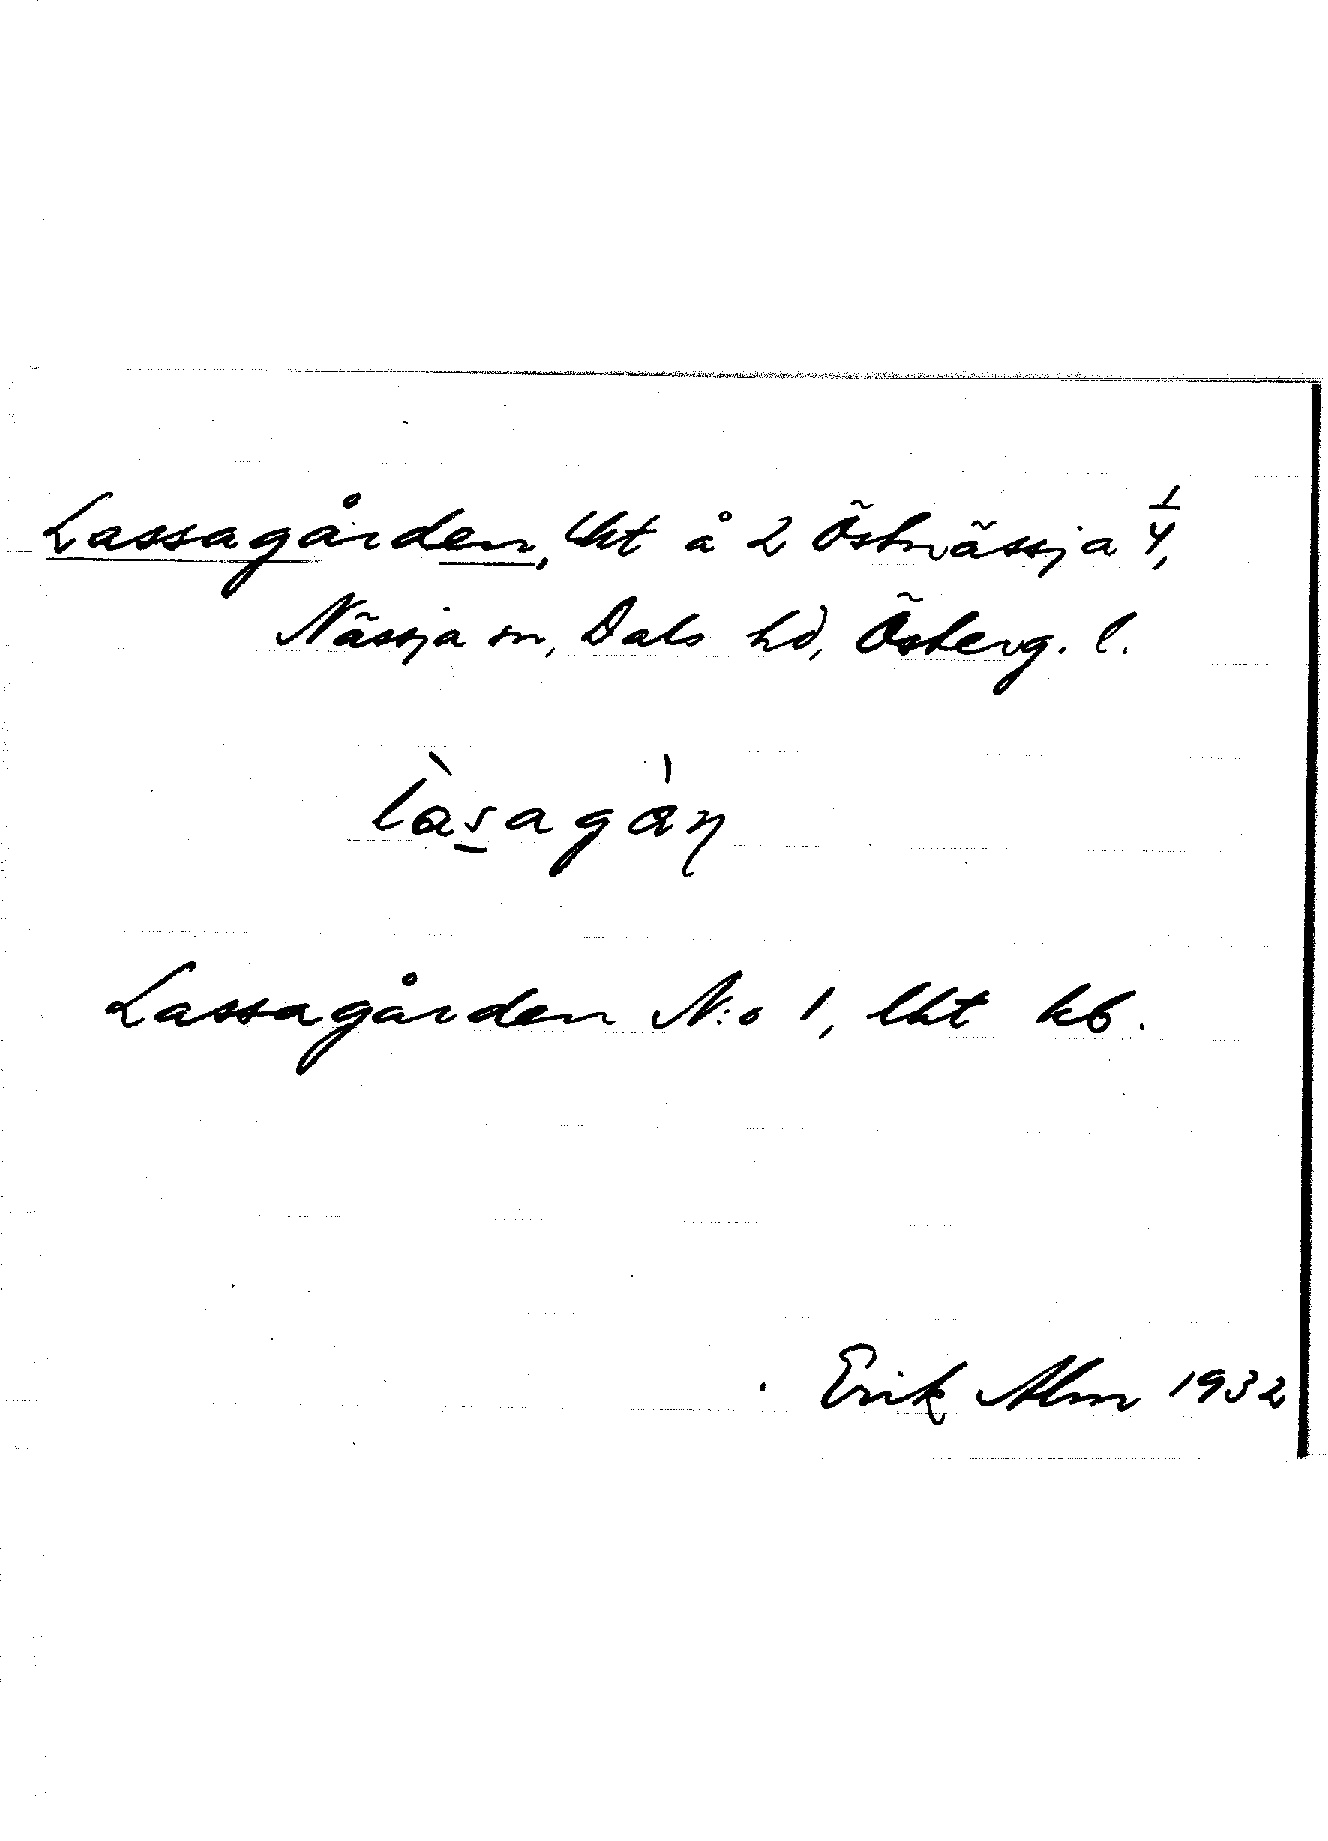 Lassagården, lht å 2 Östnässja 1/4,
Nässja sn, Dals hd, Österg. l.
làsagàn
Lassagården N:o 1, lht kb.
Erik Alm 1932